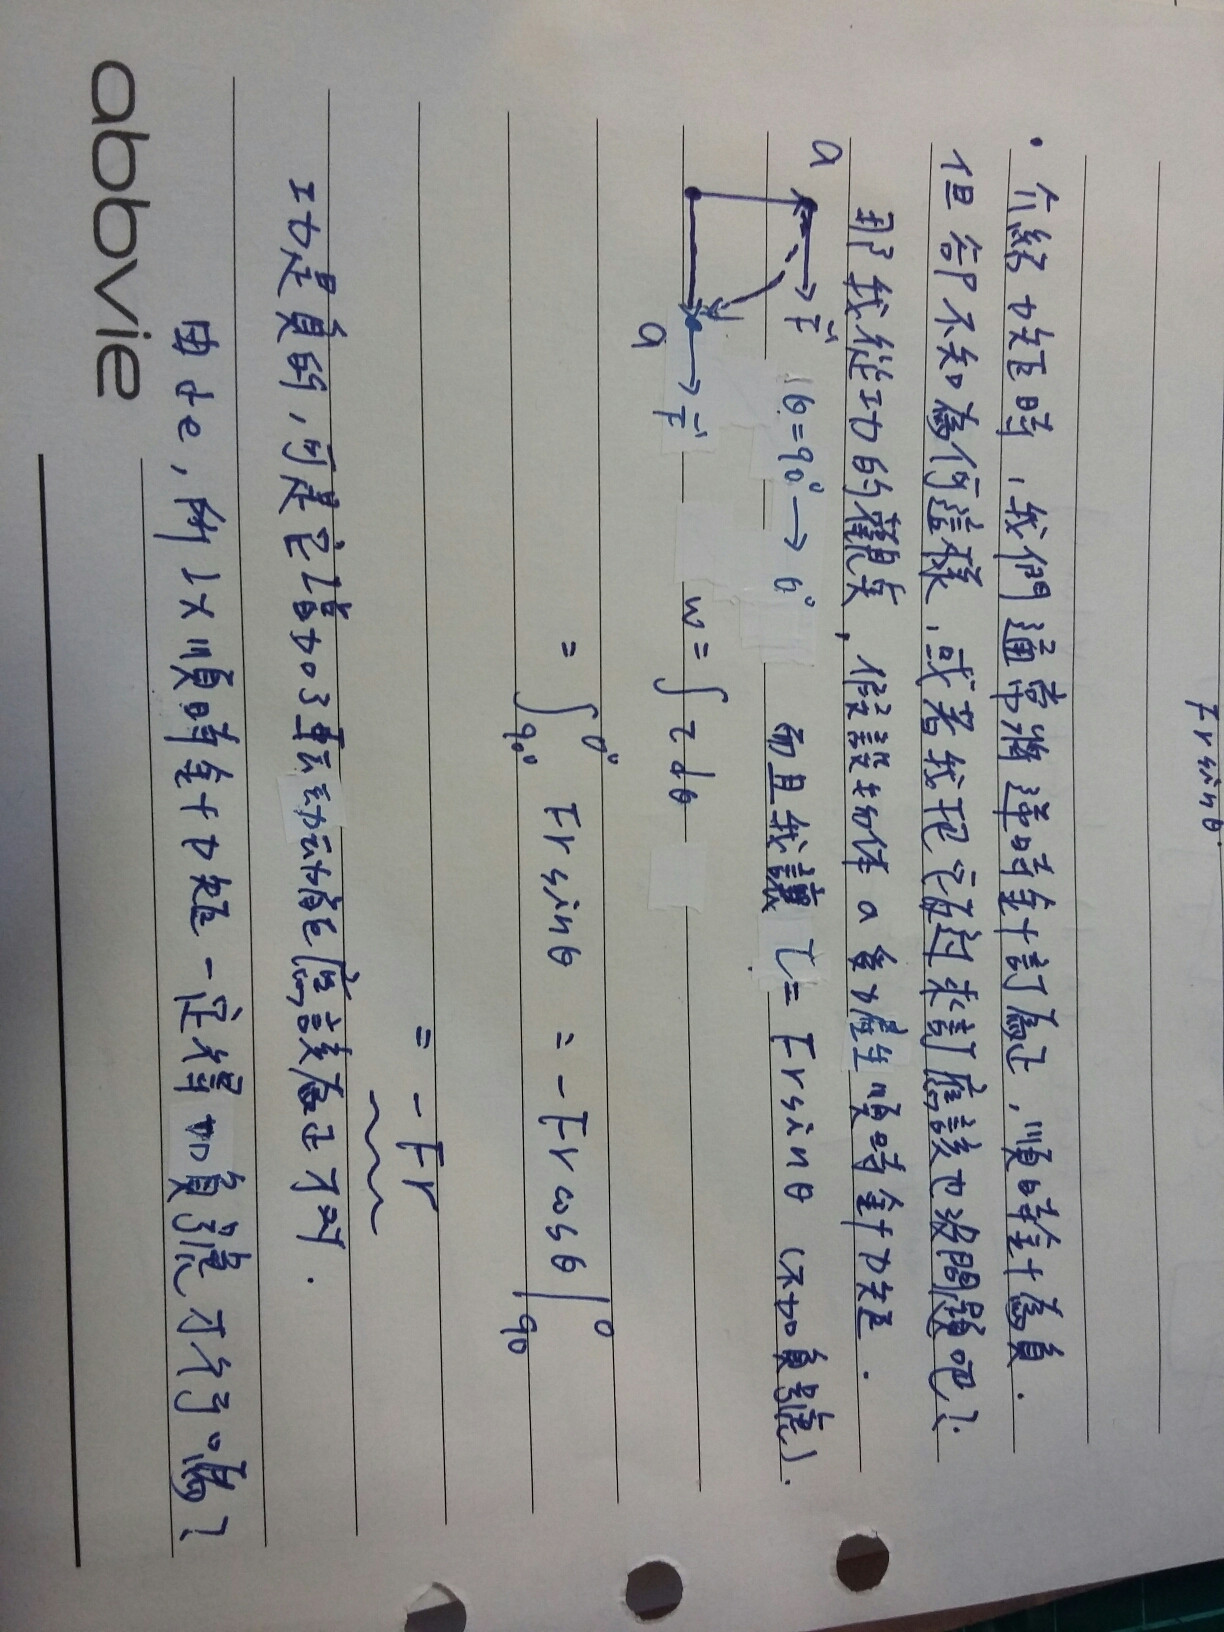 Frsinθ
• 介紹力矩時，我們通常將逆時針訂為正，順時針為負．
但卻不知為何這樣，或者我把它反過來訂應該也沒問題吧？
那我從功的觀點，假設物体 a 會產生順時針力矩．
a F θ=90°→0° 而且我讓 τ=Frsinθ (不加負號).
a F w=∫τdθ
=∫90°0° Frsinθ = -Frcosθ|90 0
= -Fr
功是負的，可是它增加了轉動動能應該為正才對．
由於，所以順時針力矩一定得加負號才行嗎？
abbvie